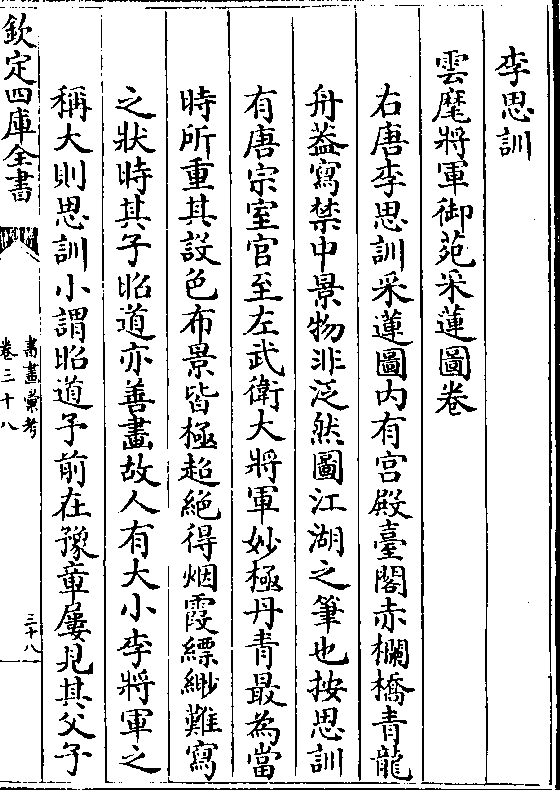 李思訓
雲麾將軍御苑采蓮圖卷
右唐李思訓采蓮圖内有宫殿臺閣赤欄橋青龍
舟葢寫禁中景物非泛然圖江湖之筆也按思訓
有唐宗室官至左武衛大將軍妙極丹青最為當
時所重其設色布景皆極超絶得烟霞縹緲難寫
之狀時其子昭道亦善畫故人有大小李將軍之
稱大則思訓小謂昭道予前在豫章屢見其父子
欽定四庫全書
書畫彚考
卷三十八
三十八